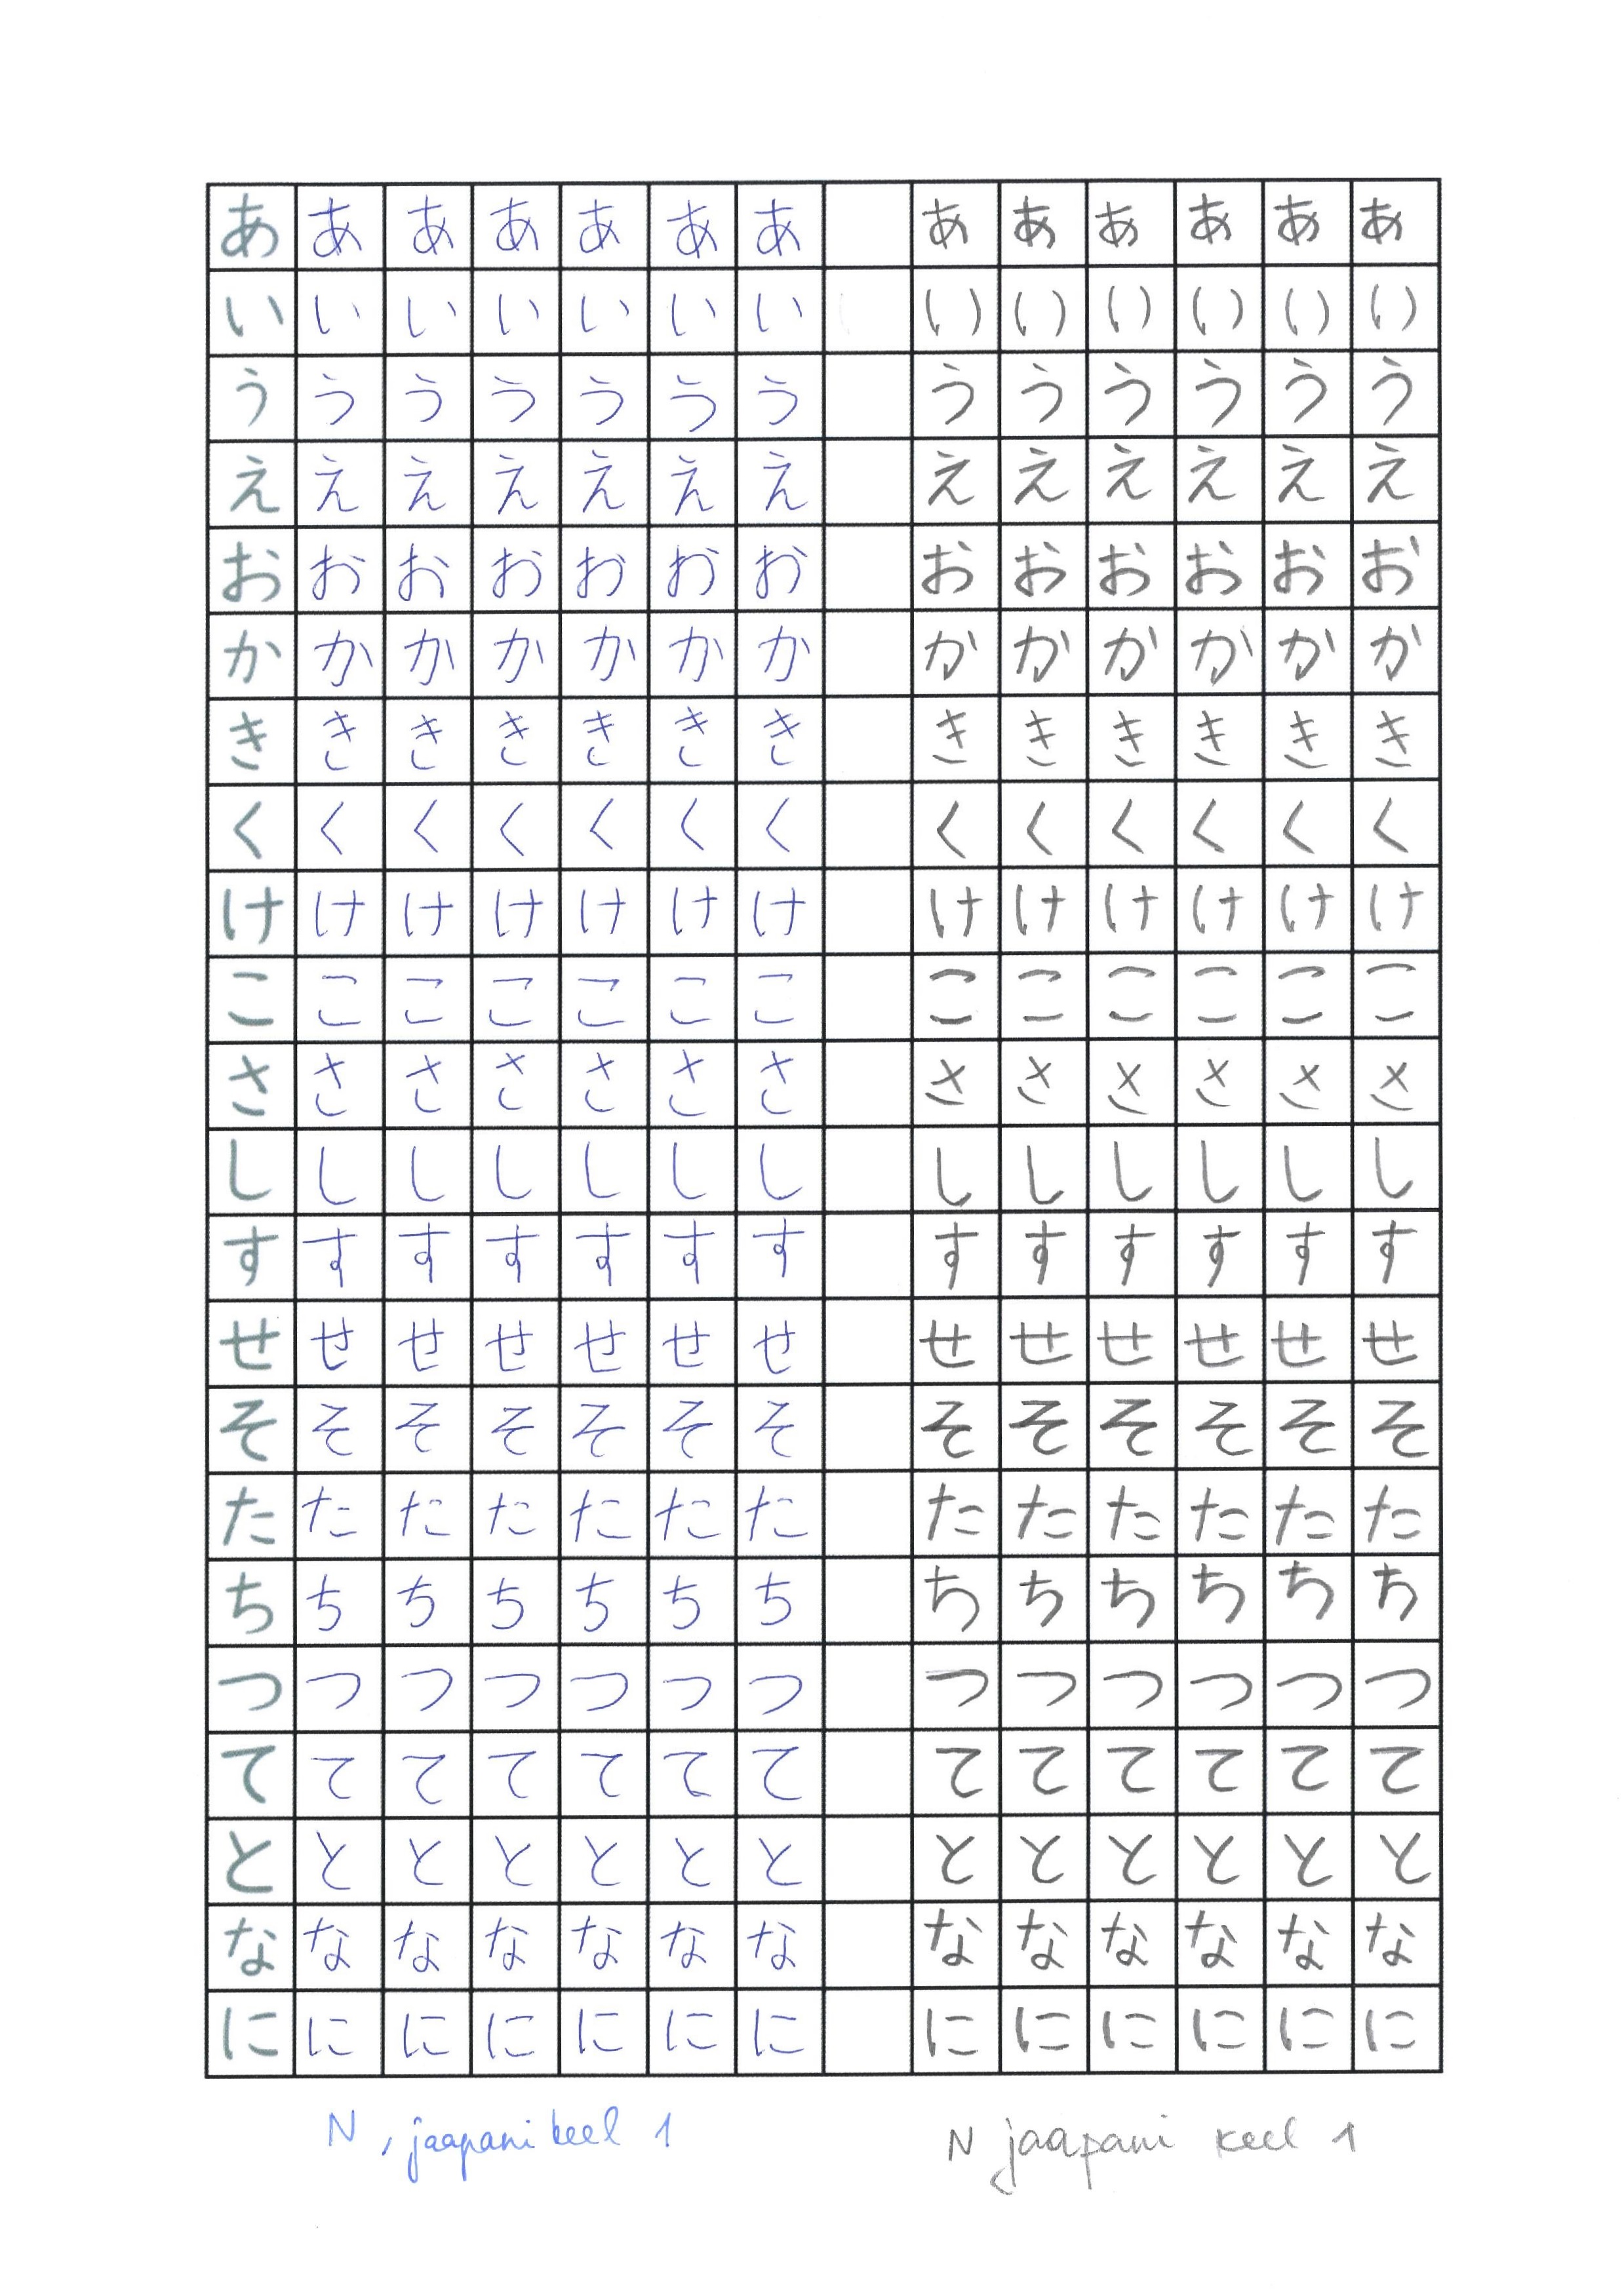 あ あ あ あ あ あ あ あ あ あ あ あ あ
い い い い い い い い い い い い い
う う う う う う う う う う う う う
え え え え え え え え え え え え え
お お お お お お お お お お お お お
か か か か か か か か か か か か か
き き き き き き き き き き き き き
く く く く く く く く く く く く く
け け け け け け け け け け け け け
こ こ こ こ こ こ こ こ こ こ こ こ こ
さ さ さ さ さ さ さ さ さ さ さ さ さ
し し し し し し し し し し し し し
す す す す す す す す す す す す す
せ せ せ せ せ せ せ せ せ せ せ せ せ
そ そ そ そ そ そ そ そ そ そ そ そ そ
た た た た た た た た た た た た た
ち ち ち ち ち ち ち ち ち ち ち ち ち
つ つ つ つ つ つ つ つ つ つ つ つ つ
て て て て て て て て て て て て て
と と と と と と と と と と と と と
な な な な な な な な な な な な な
に に に に に に に に に に に に に
N, jaapani keel 1
N jaapani keel 1